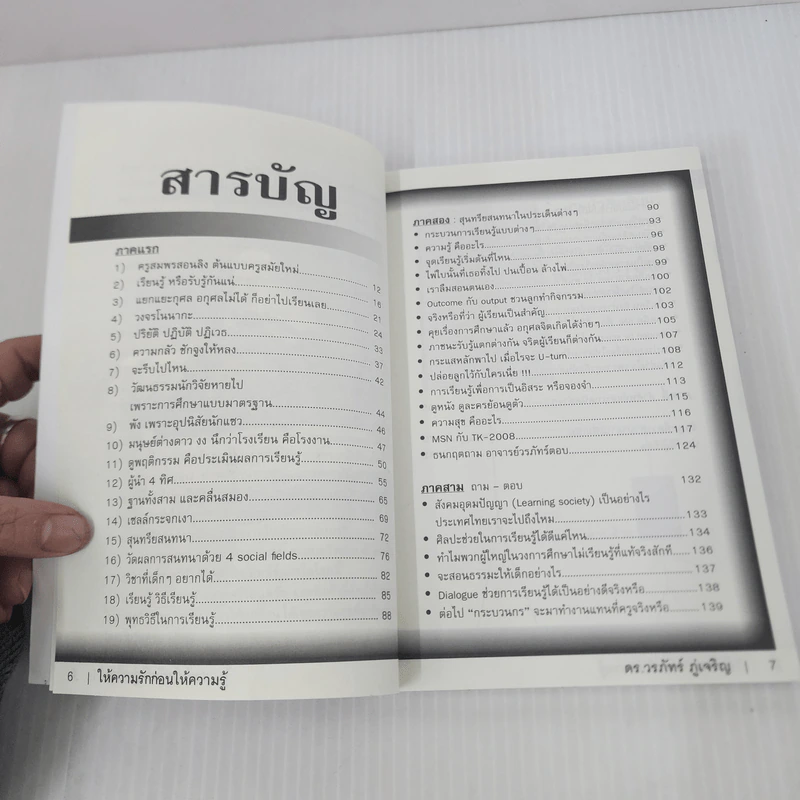 สารบัญ
ภาคแรก
1) ครูสมพรสอนลิง ต้นแบบครูสมัยใหม่ 12
2) เรียนรู้ หรือรับรู้กันแน่ 16
3) แยกแยะกุศล อกุศลไม่ได้ ก็อย่าไปเรียนเลย 21
4) วงจรโนนากะ 24
5) ปริยัติ ปฏิบัติ ปฏิเวธ 33
6) ความกลัว ชักจูงให้หลง 37
7) จะรีบไปไหน 42
8) วัฒนธรรมนักวิจัยหายไป
เพราะการศึกษาแบบมาตรฐาน 44
9) พัง เพราะอุปนิสัยนักแซว 46
10) มนุษย์ต่างดาว งง นึกว่าโรงเรียน คือโรงงาน 47
11) ดูพฤติกรรม คือประเมินผลการเรียนรู้ 50
12) ผู้นำ 4 ทิศ 55
13) ฐานทั้งสาม และคลื่นสมอง 65
14) เซลล์กระจกเงา 69
15) สุนทรียสนทนา 72
16) วัดผลการสนทนาด้วย 4 social fields 76
17) วิชาที่เด็กๆ อยากได้ 82
18) เรียนรู้ วิธีเรียนรู้ 85
19) พุทธวิธีในการเรียนรู้ 88
6 | ให้ความรักก่อนให้ความรู้
ภาคสอง : สุนทรียสนทนาในประเด็นต่างๆ 90
• กระบวนการเรียนรู้แบบต่างๆ 93
• ความรู้ คืออะไร 96
• จุดเรียนรู้เริ่มต้นที่ไหน 98
• ไฟไบนั้นที่เธอทิ้งไป ปนเปื้อน ล้างไพ่ 99
• เราลืมสอนตนเอง 100
• Outcome กับ output ชวนลูกทำกิจกรรม 102
• จริงหรือที่ว่า ผู้เรียนเป็นสำคัญ 103
• คุยเรื่องการศึกษาแล้ว อกุศลจิตเกิดได้ง่ายๆ 105
• ภาชนะรับรู้แตกต่างกัน จริตผู้เรียนก็ต่างกัน 107
• กระแสหลักพาไป เมื่อไรจะ U-turn 108
• ปล่อยลูกไว้กับใครเนี่ย !!! 112
• การเรียนรู้เพื่อการเป็นอิสระ หรือจองจำ 113
• ดูหนัง ดูละครย้อนดูตัว 115
• ความสุข คืออะไร 116
• MSN กับ TK-2008 117
• ธนกฤตถาม อาจารย์วรภัทร์ตอบ 124
ภาคสาม ถาม – ตอบ 132
• สังคมอุดมปัญญา (Learning society) เป็นอย่างไร
ประเทศไทยเราจะไปถึงไหม 133
• ศิลปะช่วยในการเรียนรู้ได้ดีแค่ไหน 134
• ทำไมพวกผู้ใหญ่ในวงการศึกษาไม่เรียนรู้ที่แท้จริงสักที 136
• จะสอนธรรมะให้เด็กอย่างไร 137
• Dialogue ช่วยการเรียนรู้ได้เป็นอย่างดีจริงหรือ 138
• ต่อไป “กระบวนกร” จะมาทำงานแทนที่ครูจริงหรือ 139
ดร.วรภัทร์ ภู่เจริญ | 7